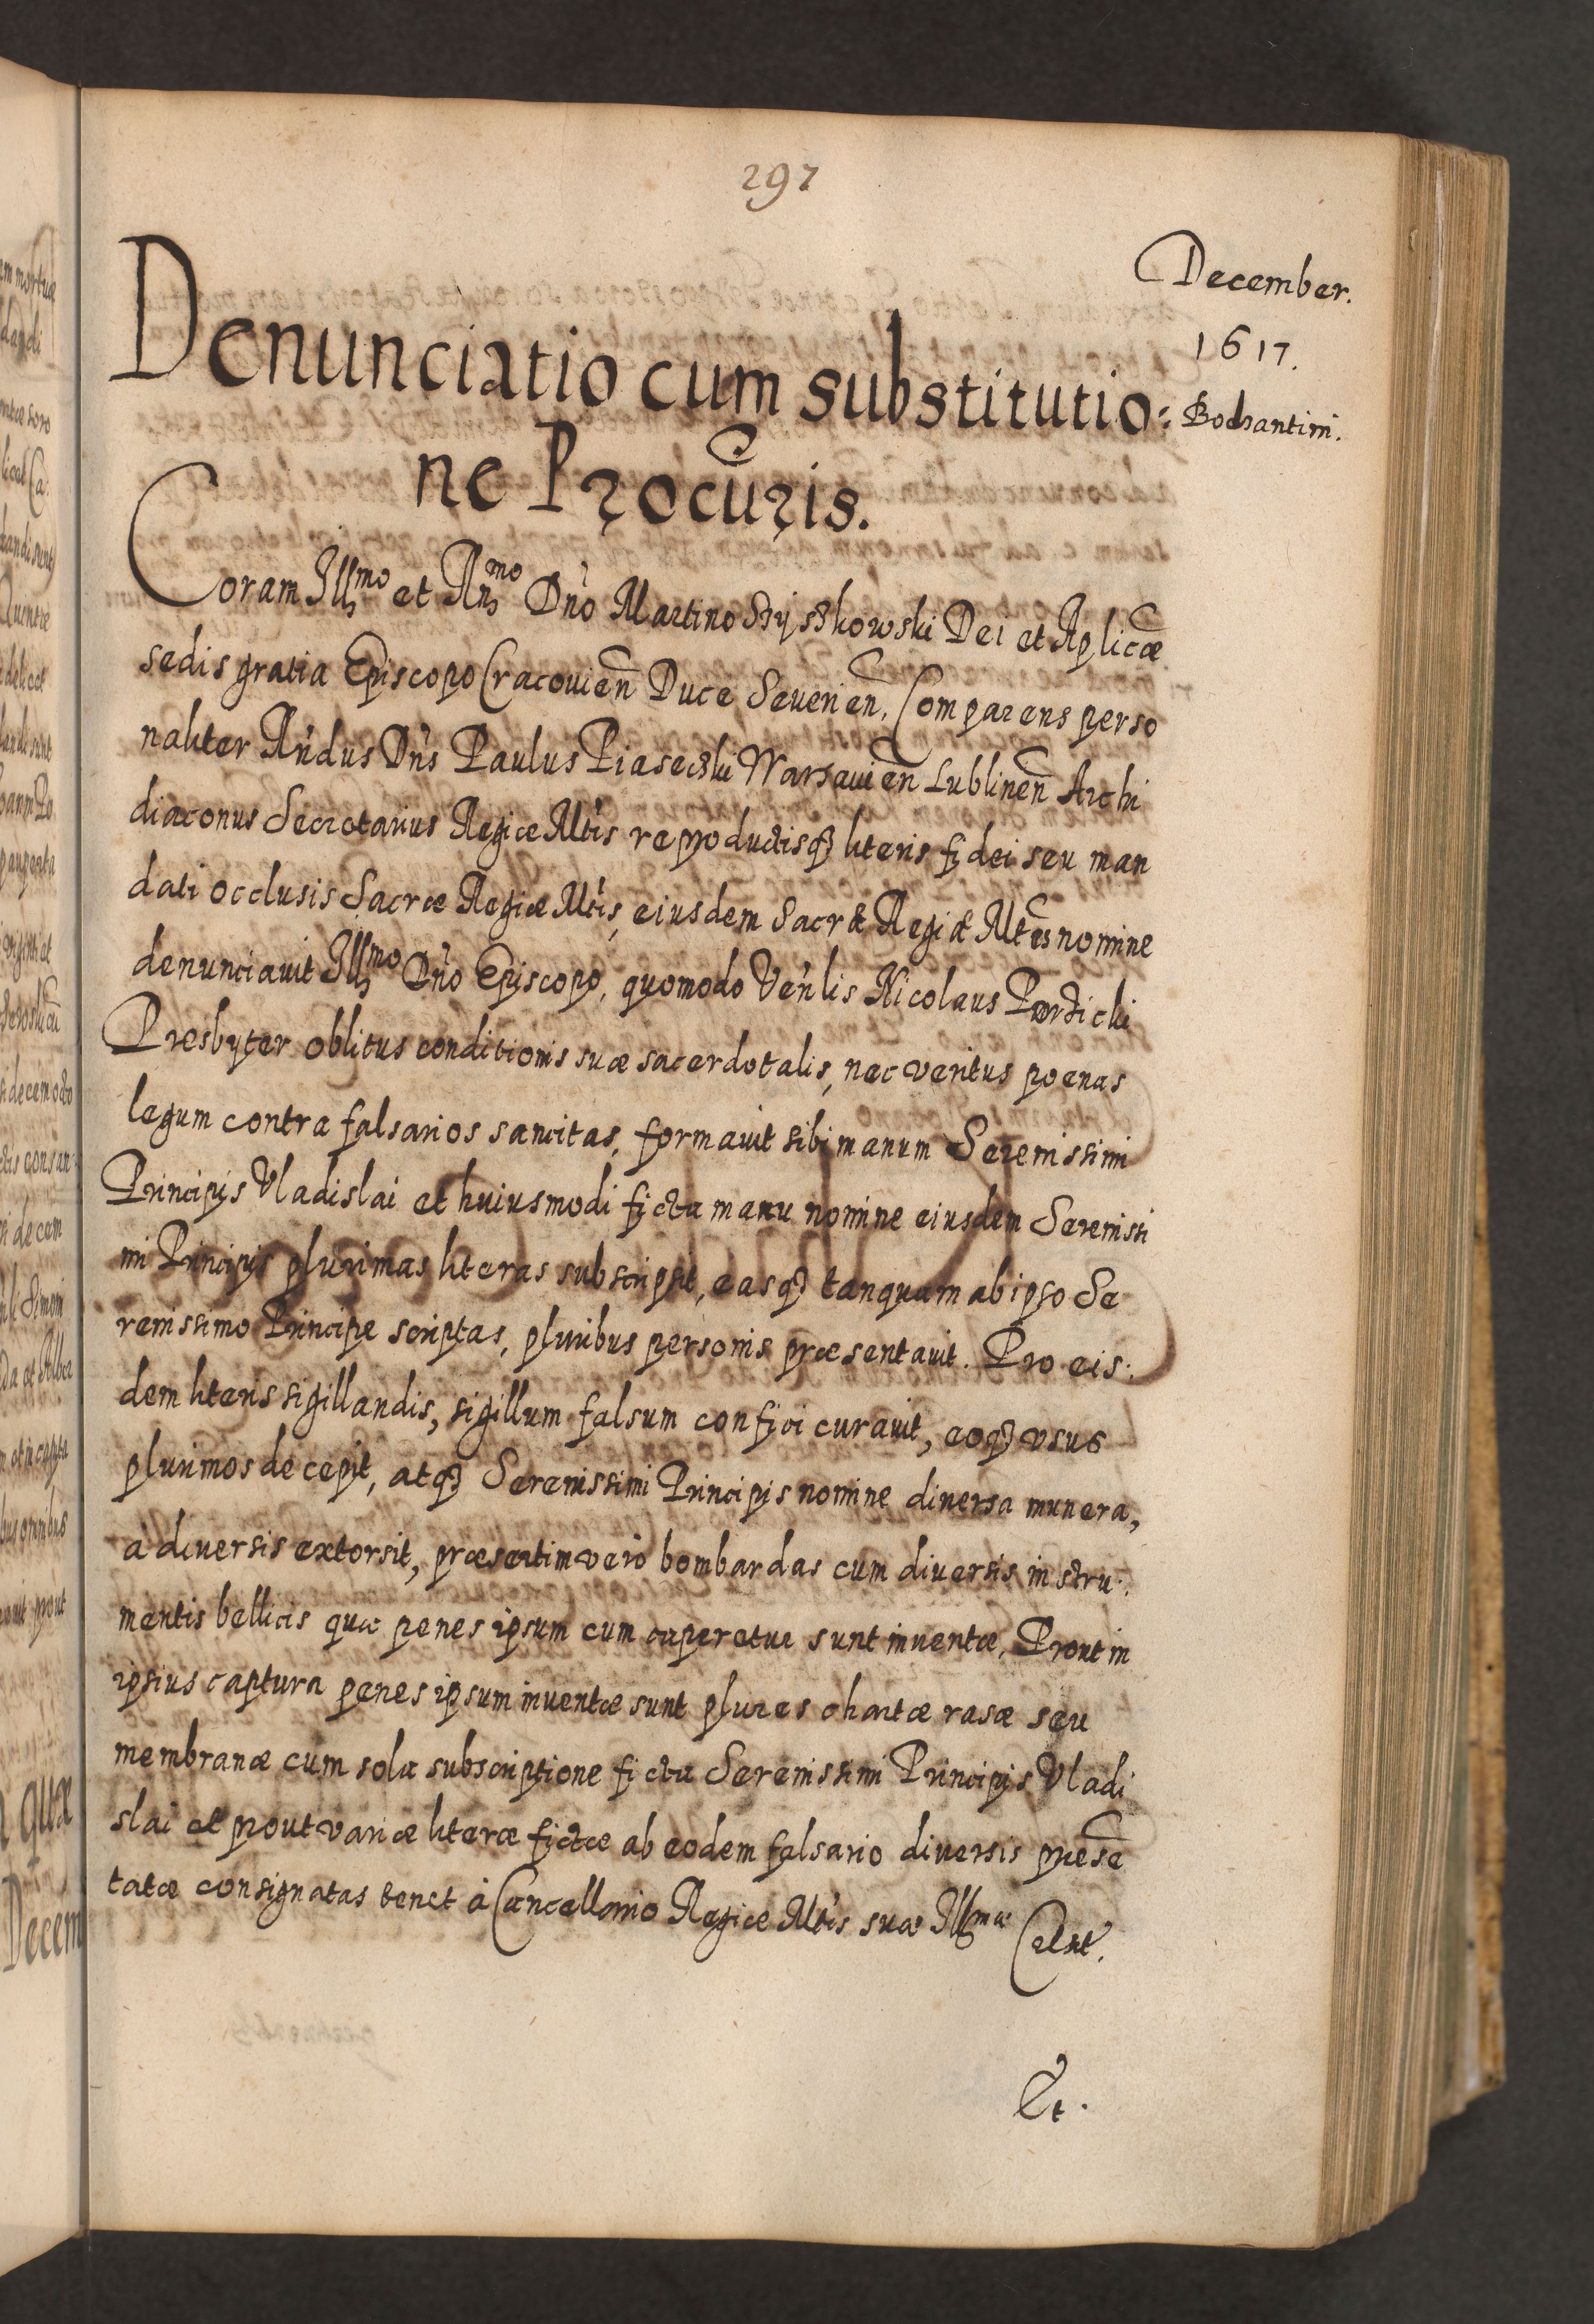 297
December.
1617.
Bodzantini.
Denunciatio cum substitutio:
ne Procuris.
Coram Illmo et Rnmo Dno Martino Szyszkowski Dei et Aplicæ
sedis gratia Episcopo Cracouien Duce Seuerien, Comparens perso
naliter Rndus Dns Paulus Piaseczki Warsauien Lublinen Archi
diaconus Secretarius Regiæ Mtis reproductisq literis fidei seu man
dati occlusis Sacræ Regiæ Mtis, eiusdem Sacræ Regiæ Mtis nomine
denunciauit Illmo Dno Episcopo, quomodo Venlis Nicolaus
Presbyter oblitus conditionis suæ sacerdotalis, nec veritus poenas
legum contra falsarios sancitas, formauit sibi manum Serenissimi
Principis Vladislai et huiusmodi ficta manu nomine eiusdem Serenissi
mi Principis plurimas literas subscripsit, easq tanquam ab ipso Se
renissimo Principe scriptas, pluribus personis præsentauit. Pro eis:
dem literis sigillandis, sigillum falsum confici curauit, eoq vsus
plurimos decepit, atq Serenissimi Principis nomine diuersa munera,
à diuersis extorsit, præsertim vero bombardas cum diuersis instru:
mentis bellicis quæ penes ipsum cum caperetur sunt inuentæ, Prout in
ipsius captura penes ipsum inuentæ sunt plures chartæ rasæ seu
membranæ cum sola subscriptione ficta Serenissimi Principis Vladi
slai et prout variæ literæ fictæ ab eodem falsario diuersis præsē
tatæ consignatas tenet à Cancellario Regiæ Mtis suæ Illmæ Celnt.
Et.